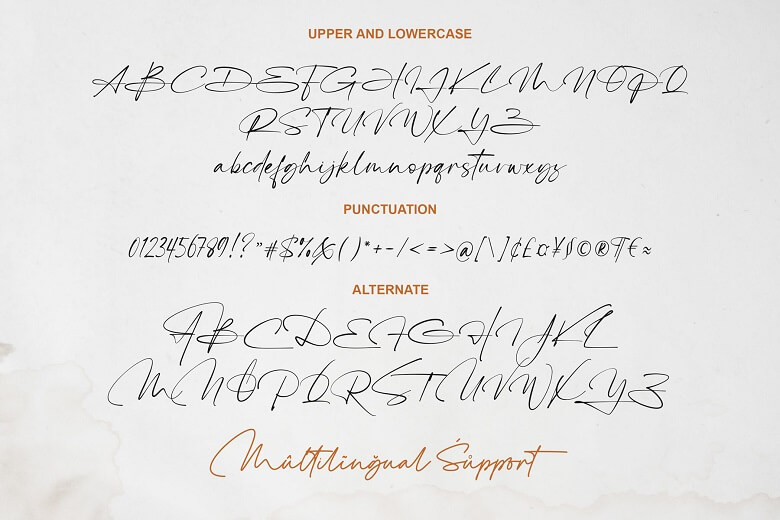 UPPER AND LOWERCASE
ABCDEFGHIJKLMNOPQ
RSTUVWXYZ
abcdefghijklmnopqrstuvwxyz
PUNCTUATION
0123456789!?"#$%&()*+-/<=>@[\]¢£¤¥ƒ©®¶€≈
ALTERNATE
ABCDEFGHIJKL
MNOPQRSTUVWXYZ
Mûltilīnğual Śůppört